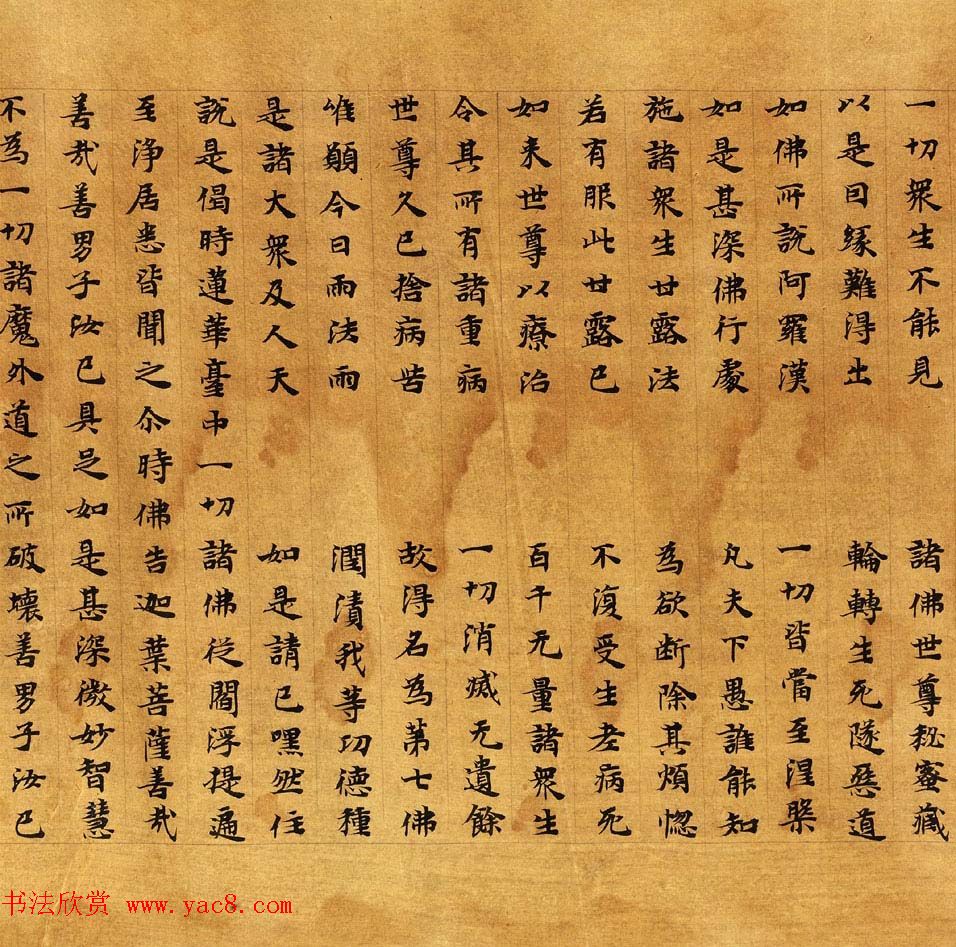 一切衆生不能見　諸佛世尊秘蜜藏
以是因縁難得出　輪轉生死墜惡道
如佛所說阿羅漢　一切皆當至涅槃
如是甚深佛行處　凡夫下愚誰能知
施諸衆生甘露法　為欲断除其煩惚
若有服此甘露已　不復受生老病死
如来世尊以療治　百千无量諸衆生
令其所有諸重病　一切消滅无遺餘
世尊久已捨病苦　故得名為苐七佛
唯願今日雨法雨　潤漬我等功德種
是諸大衆及人天　如是請已嘿然住
說是偈時蓮華臺中一切諸佛従閻浮提遍
至浄居悉皆聞之尒時佛告迦葉菩薩善哉
善哉善男子汝已具足如是甚深微妙智慧
不為一切諸魔外道之所破壞善男子汝已
书法欣赏 www.yac8.com